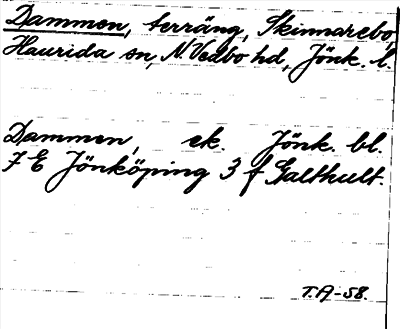 Dammen, terräng, Skinnarebo,
Haurida sn, N. Vedbo hd, Jönk. l.
Dammen, ek. Jönk. bl.
7 E Jönköping 3 f Galthult.
T.A-58.